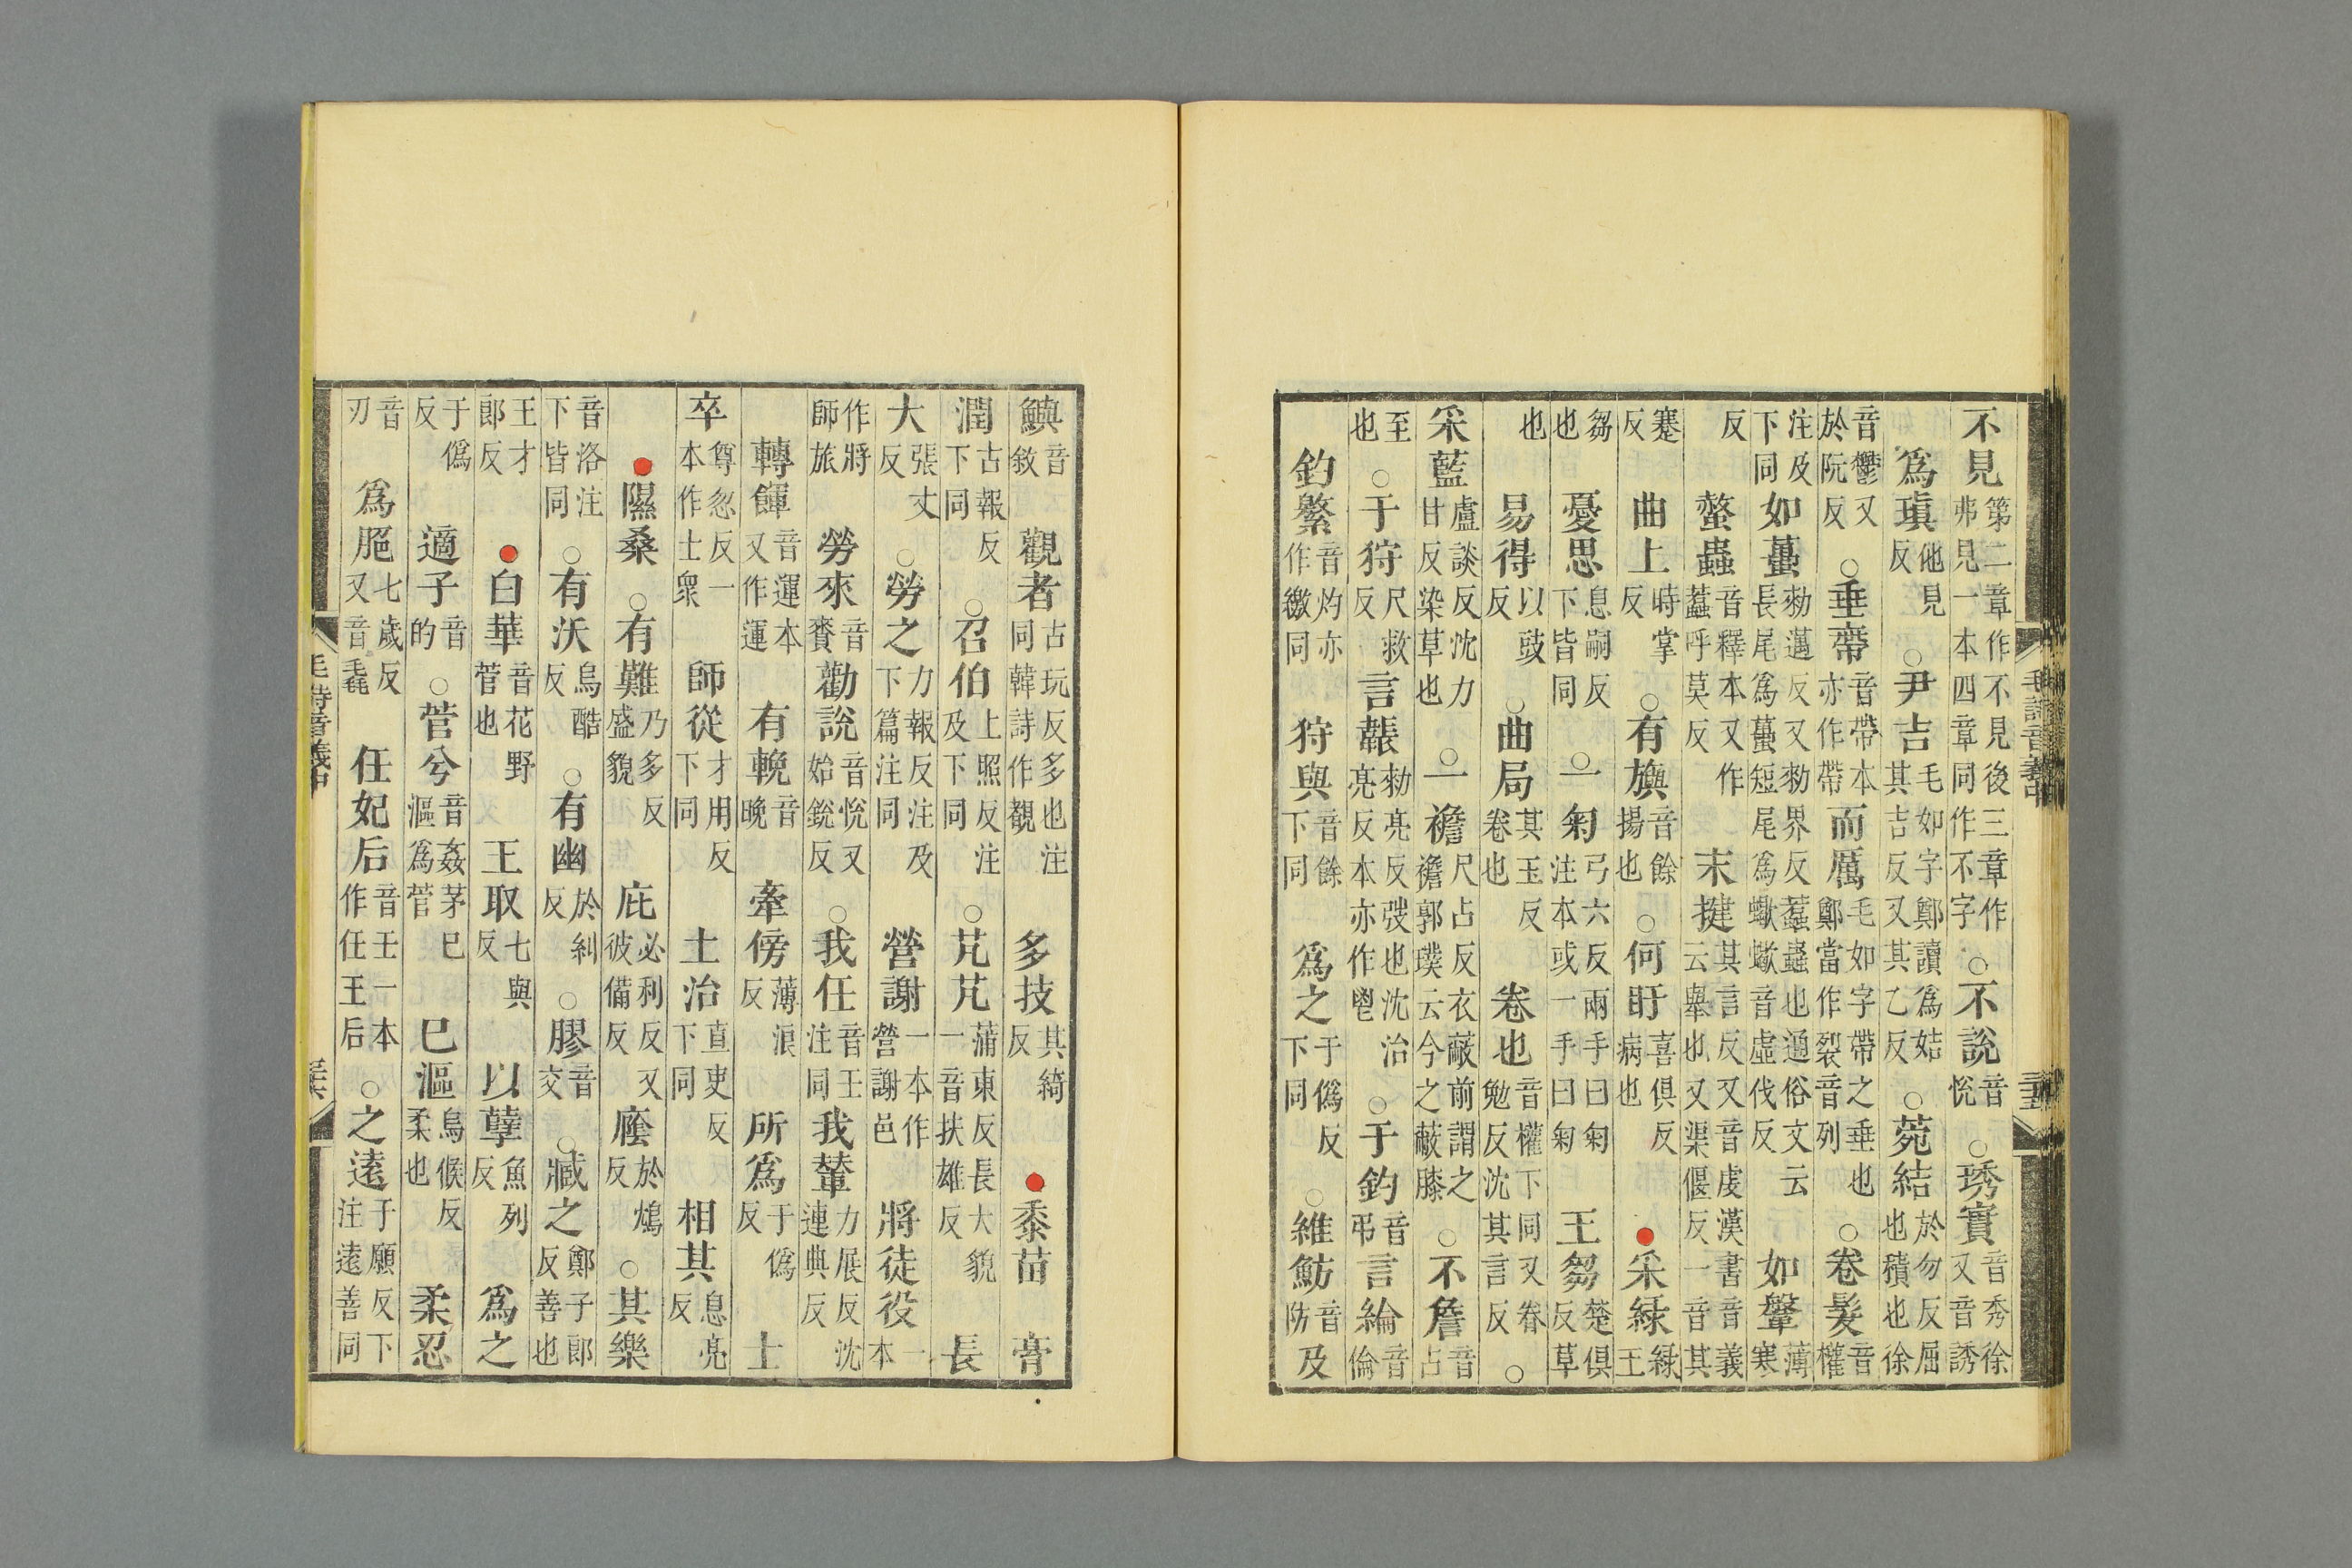 不見第二章作不見後三章作弗見一本四章同作不字○不說音悅○琇實音秀徐又音誘
爲瑱他見反○尹吉毛如字鄭讀爲姞其吉反又其乙反○菀結於勿反屈也積也徐
音鬱又於阮反○垂帶音帶本亦作帶而厲毛如字帶之垂也鄭當作裂音列○卷髮音權
注及下同如蠆勑邁反又勑界反蠚蟲也通俗文云長尾爲蠆短尾爲蠍蠍音虛伐反如鞶薄寒
反螫蟲音釋本又作蠚呼莫反末揵其言反又音虔漢書音義云舉也又渠偃反一音其
蹇反曲上時掌反○有旟音餘揚也○何盱喜俱反病也采綠綠王
芻也憂思息嗣反下皆同○一匊弓六反兩手曰匊注本或一手曰匊王芻楚俱反草
也易得以豉反○曲局其玉反卷也卷也音權下同又眷勉反沈其言反○
采藍盧談反沈力甘反染草也○一襜尺占反衣蔽前謂之襜郭璞云今之蔽膝○不詹音占
至也○于狩尺救反言韔勑亮反弢也沈治亮反本亦作鬯○于釣音弔言綸音倫
釣繁音灼亦作繳同狩與音餘下同爲之于僞反下同○維魴音防及
毛詩音義中
鱮音敘觀者古玩反多也注同韓詩作覩多技其綺反黍苗膏
潤古報反下同○召伯上照反注及下同○芃芃蒲東反長大貌一音扶雄反長
大張丈反○勞之力報反注及下篇注同營謝一本作營謝邑將徒役一本
作將師旅勞來音賚勸說音悅又始銳反○我任音壬注同我輦力展反沈連典反
轉餫音運本又作運有輓音晚牽傍薄浪反所爲于僞反士
卒尊忽反一本作士衆師從才用反下同土治直吏反下同相其息亮反
隰桑○有難乃多反盛貌庇必利反又彼備反廕於鴆反○其樂
音洛注下皆同○有沃烏酷反○有幽於糾反○膠音交○臧之鄭子郎反善也
王才郎反白華音花野菅也王取七與反以孽魚列反爲之
于僞反適子音的○菅兮音姦茅已漚爲菅已漚烏候反柔也柔忍
音刃爲脃七歲反又音毳任妃后音壬一本作任王后○之遠于願反下注遠善同
毛詩音義中